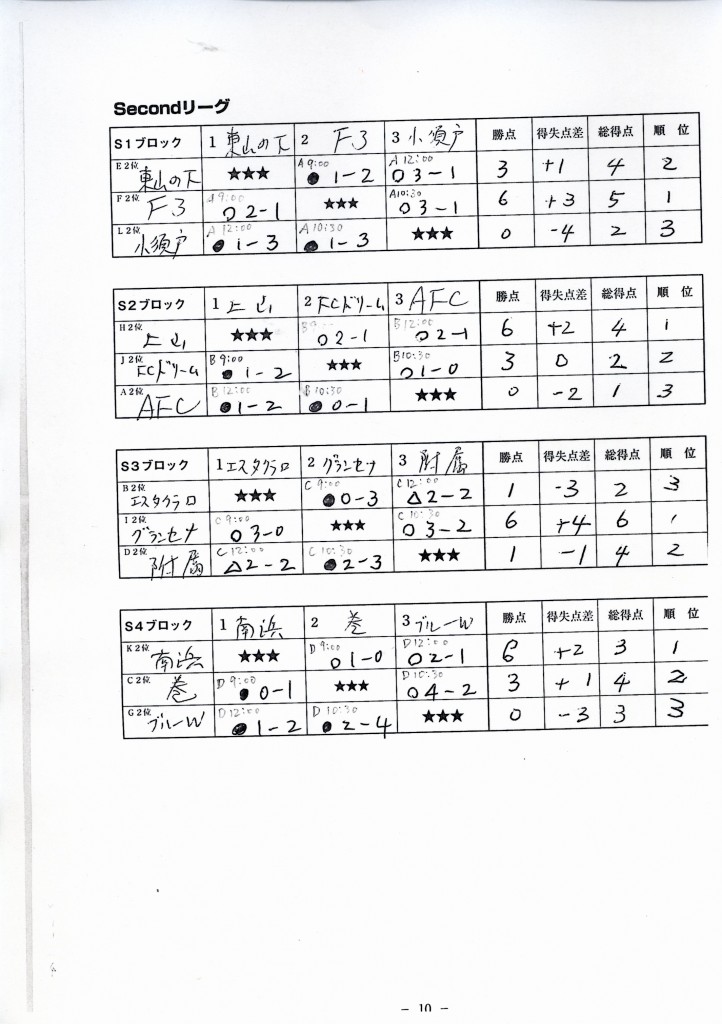 Secondリーグ
S1ブロック 1 東山の下 2 F3 3 小須戸 勝点 得失点差 総得点 順 位
E2位 東山の下 ★★★ A 9:00 ●1-2 A 12:00 ○3-1 3 +1 4 2
F2位 F3 A 9:00 ○2-1 ★★★ A10:30 ○3-1 6 +3 5 1
L2位 小須戸 A 12:00 ●1-3 A 10:30 ●1-3 ★★★ 0 -4 2 3
S2ブロック 1 上山 2 FCドリーム 3 AFC 勝点 得失点差 総得点 順 位
H2位 上山 ★★★ B9:00 ○2-1 B12:00 ○2-1 6 +2 4 1
J2位 FCドリーム B 9:00 ●1-2 ★★★ B10:30 ○1-0 3 0 2 2
A2位 AFC B 12:00 ●1-2 B 10:30 ●0-1 ★★★ 0 -2 1 3
S3ブロック 1 エスタクロ 2 グランセナ 3 附属 勝点 得失点差 総得点 順 位
B2位 エスタクロ ★★★ C 9:00 ●0-3 C 12:00 △2-2 1 -3 2 3
I2位 グランセナ C 9:00 ○3-0 ★★★ C 10:30 ○3-2 6 +4 6 1
D2位 附属 C 12:00 △2-2 C 10:30 ●2-3 ★★★ 1 -1 4 2
S4ブロック 1 南浜 2 巻 3 ブルーW 勝点 得失点差 総得点 順 位
K2位 南浜 ★★★ D 9:00 ○1-0 D12:00 ○2-1 6 +2 3 1
C2位 巻 D 9:00 ●0-1 ★★★ D 10:30 ○4-2 3 +1 4 2
G2位 ブルーW D 12:00 ●1-2 D 10:30 ●2-4 ★★★ 0 -3 3 3
- 10 -